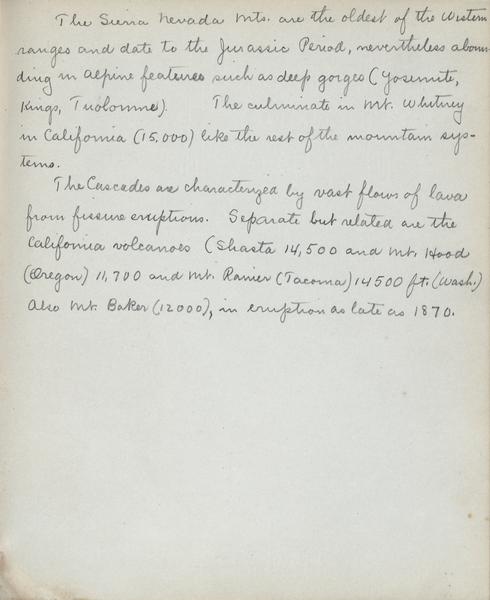 The Sierra Nevada Mts. are the oldest of the Western
ranges and date to the Jurassic Period, nevertheless aboun-
ding in alpine features such as deep gorges (Yosemite,
Kings, Tuolomne). The culminate in Mt. Whitney
in California (15,000) like the rest of the mountain sys-
tems.
The Cascades are characterized by vast flows of lava
from fissure eruptions. Separate but related are the
California volcanoes (Shasta 14,500 and Mt. Hood
(Oregon) 11,700 and Mt. Ranier (Tacoma) 14500 ft. (Wash.)
Also Mt. Baker (12000), in eruption as late as 1870.